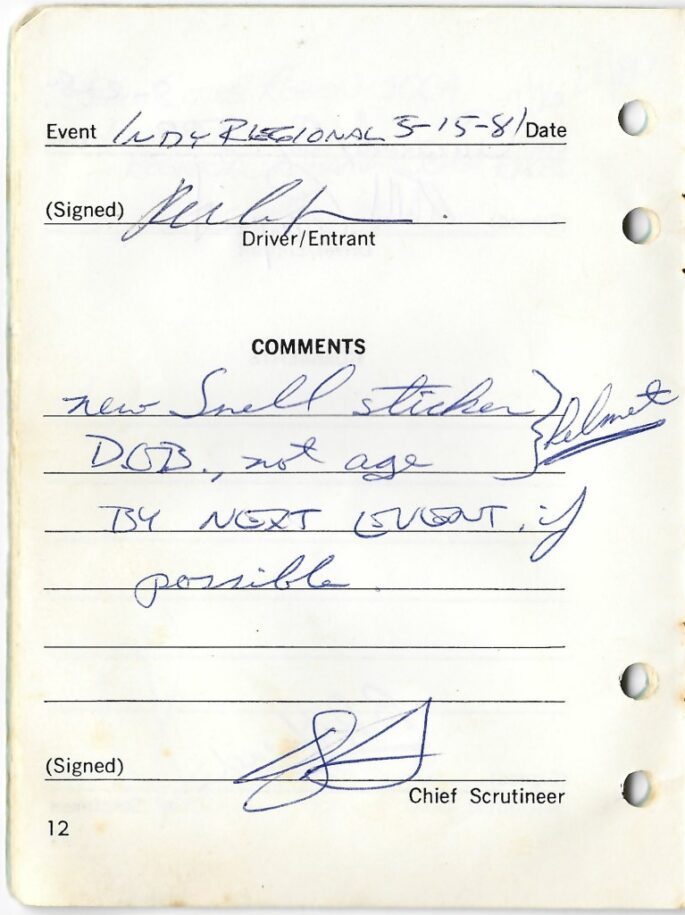 Event INDY REGIONAL 3-15-81 Date
(Signed)
Driver/Entrant
COMMENTS
new Snell sticker } helmet
D.O.B., not age
BY NEXT EVENT, if
possible.
(Signed)
Chief Scrutineer
12